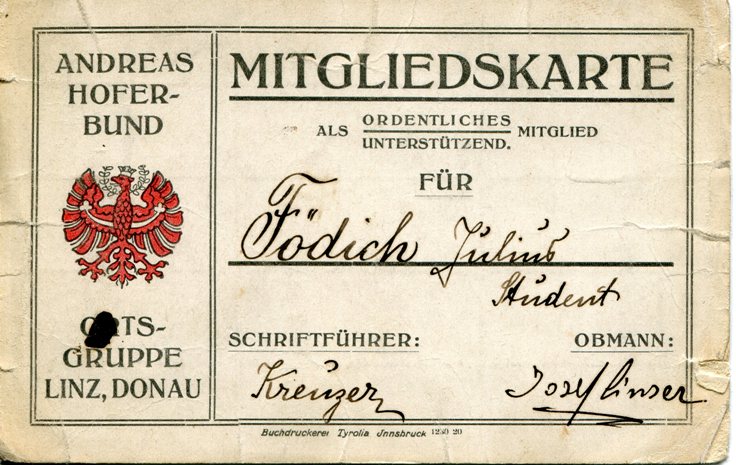 ANDREAS
HOFER-
BUND
ORTS-
GRUPPE
LINZ, DONAU
MITGLIEDSKARTE
ALS ORDENTLICHES MITGLIED
UNTERSTÜTZEND.
FÜR
Födich Julius
Student
SCHRIFTFÜHRER:
Kreuzer
OBMANN:
Josef Linser
Buchdruckerei Tyrolia Jnnsbruck 1250 20